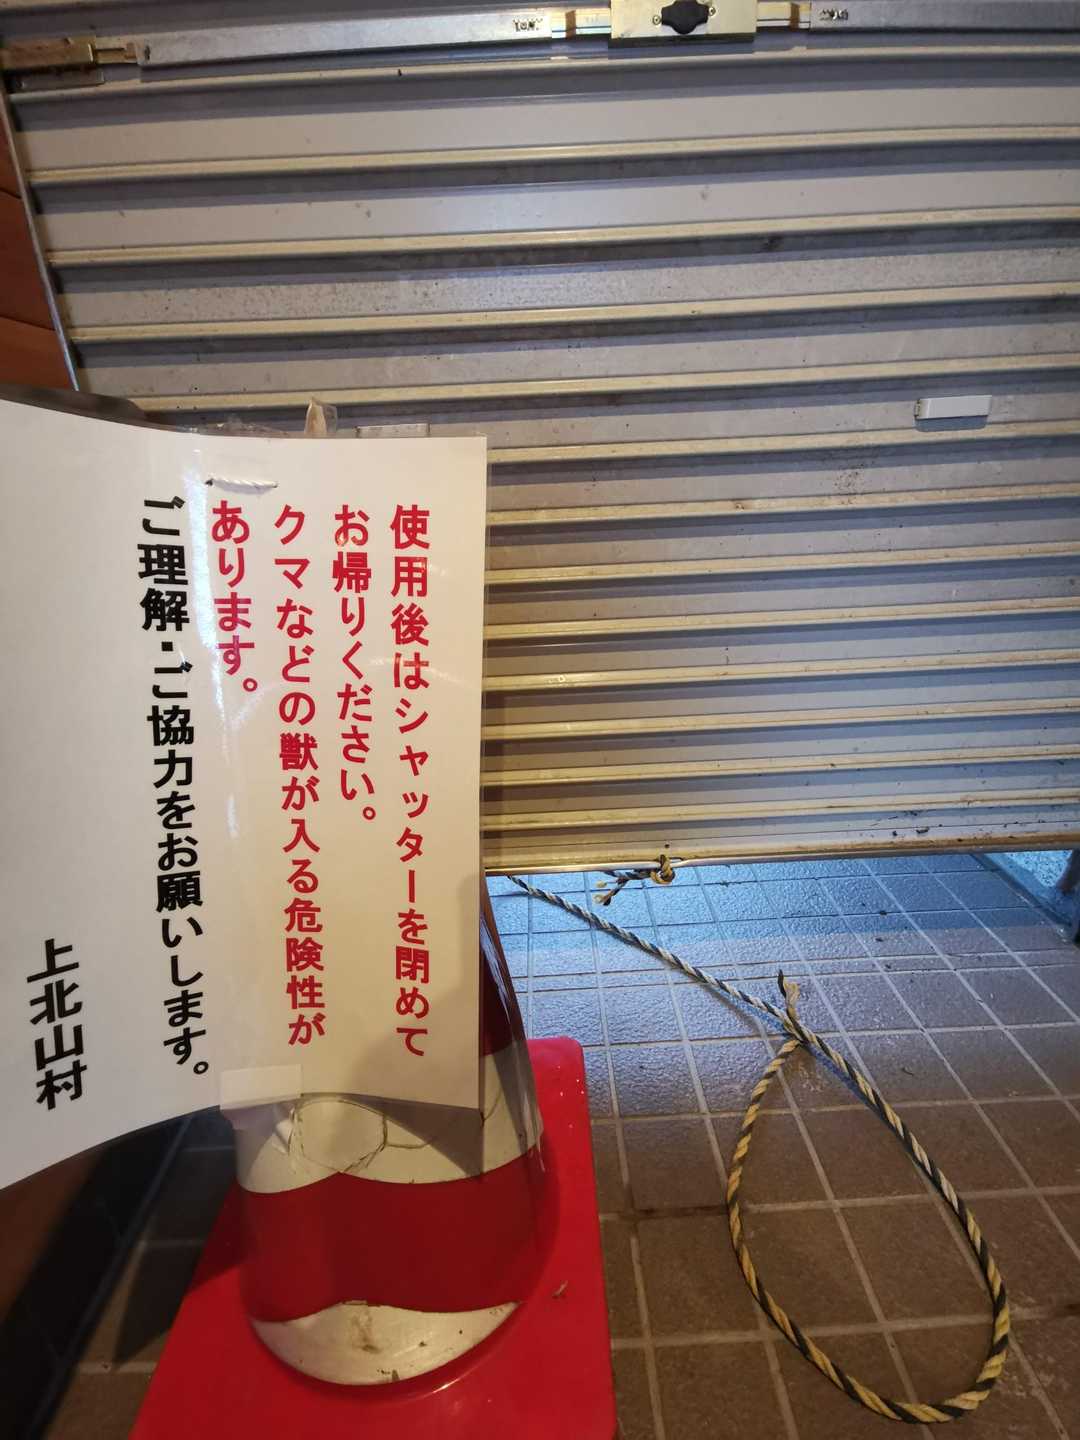 使用後はシャッターを閉めて
お帰りください。
クマなどの獣が入る危険性が
あります。
ご理解・ご協力をお願いします。
上北山村